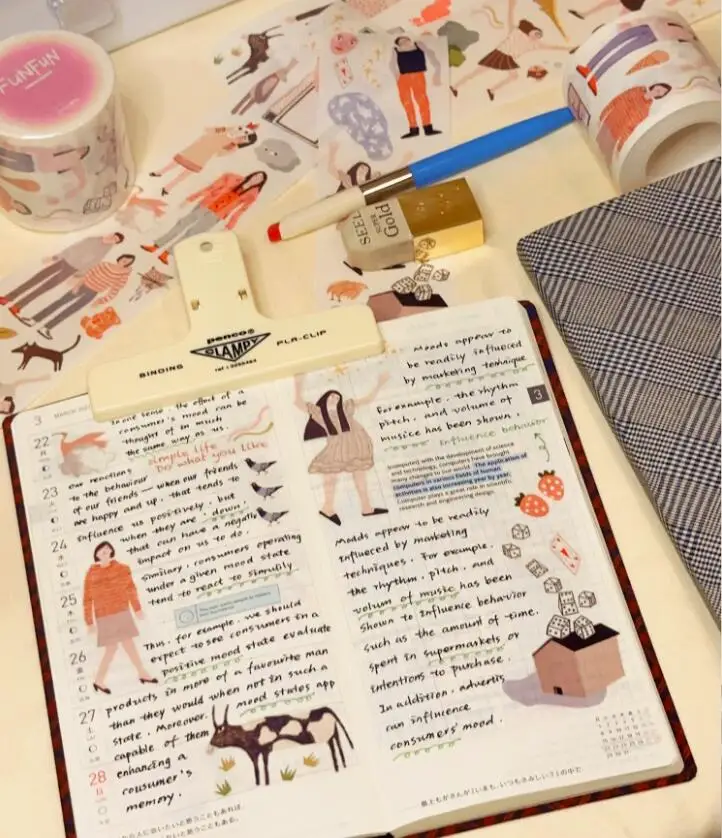 FUNFUN
SEED
SUPER
Gold
penco®
CLAMPY
BINDING
PLA-CLIP
3
22
23
24
25
26
27
28
In one sense, the effect of a
consumer's mood can be
thought of in much
the same way as us.
simple life
Do what you like
our reactions
to the behaviour
of our friends — when our friends
are happy and up, that tends to
influence us positively, but
when they are "down",
that can have a negative
impact on us to do.
Similary, consumers operating
under a given mood state
tend to react to similully
Thus, for example, we should
expect to see consumers in a
positive mood state evaluate
products in more of a favourite man
than they would when not in such a
state. Moreover, mood states app
capable of them
enhancing a
consumer's
memory.
Moods appear to
be readily influenced
by marketing technique
For example, the rhythm
pitch, and volume of
musice has been shown.
influence behavior
3
(computer) with the development of science
and technology, computers have brought
many changes to our world. The application of
computers in various fields of human
activities is also increasing year by year.
Computer plays a great role in scientific
research and engineering design.
Moods appear to be readily
influenced by marketing
techniques. For example,
the rhythm, pitch, and
volum of music has been
shown to influence behavior
such as the amount of time.
spent in supermaskets or
intentions to purchase.
In addition, advertis
can influence
consumers' mood.
最上もがさん『いまも、いつもさみしい？』の中で